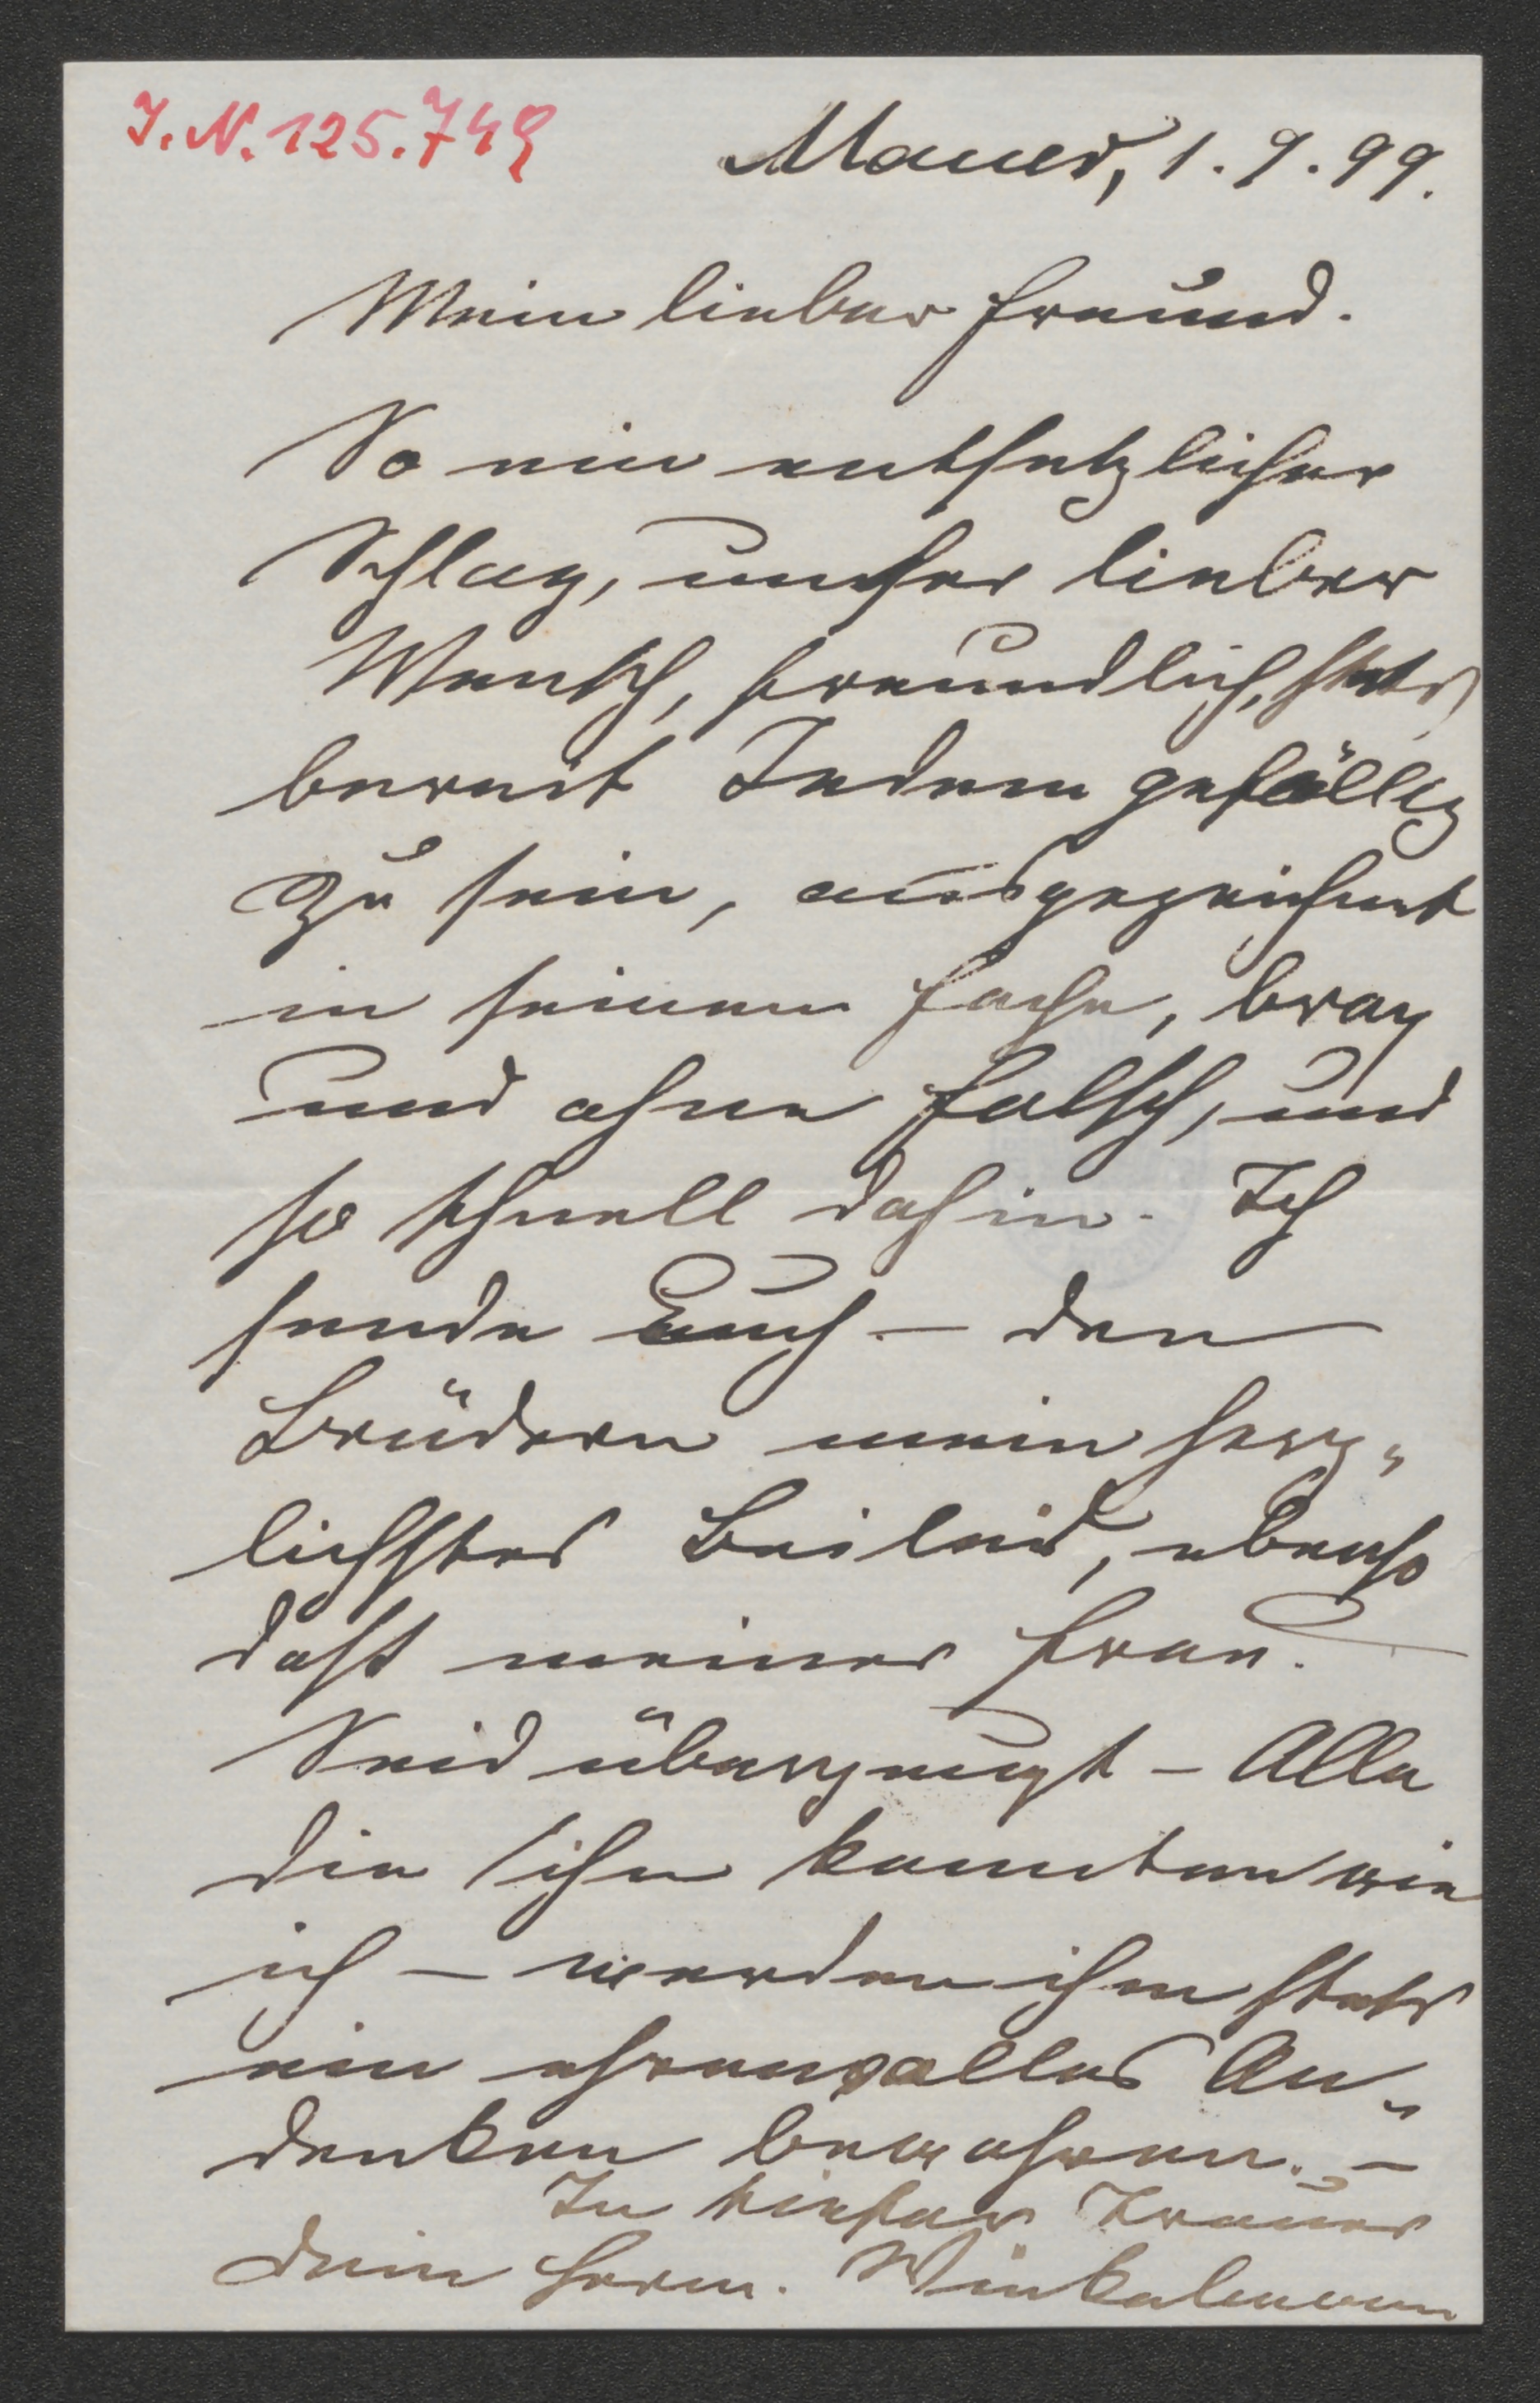 J.N. 125.749
Mauer, 1.9.99.
Mein lieber Freund.
So ein entsetzlicher
Schlag, unser lieber
Mensch, freundlich, stets
bereit Jedem gefällig
zu sein, ausgezeichnet
in seinem Fache, brav
und ohne Falsch, und
so schnell dahin. Ich
sende Euch – den
Brüdern mein herz„
lichstes Beileid, ebenso
daßt meiner Frau.
Seid überzeugt – Alle
die ihn kannten wie
ich – werden ihm stets
ein ehrenvolles An„
denken bewahren. –
In tiefer Trauer
Dein Herm. Winkelmann